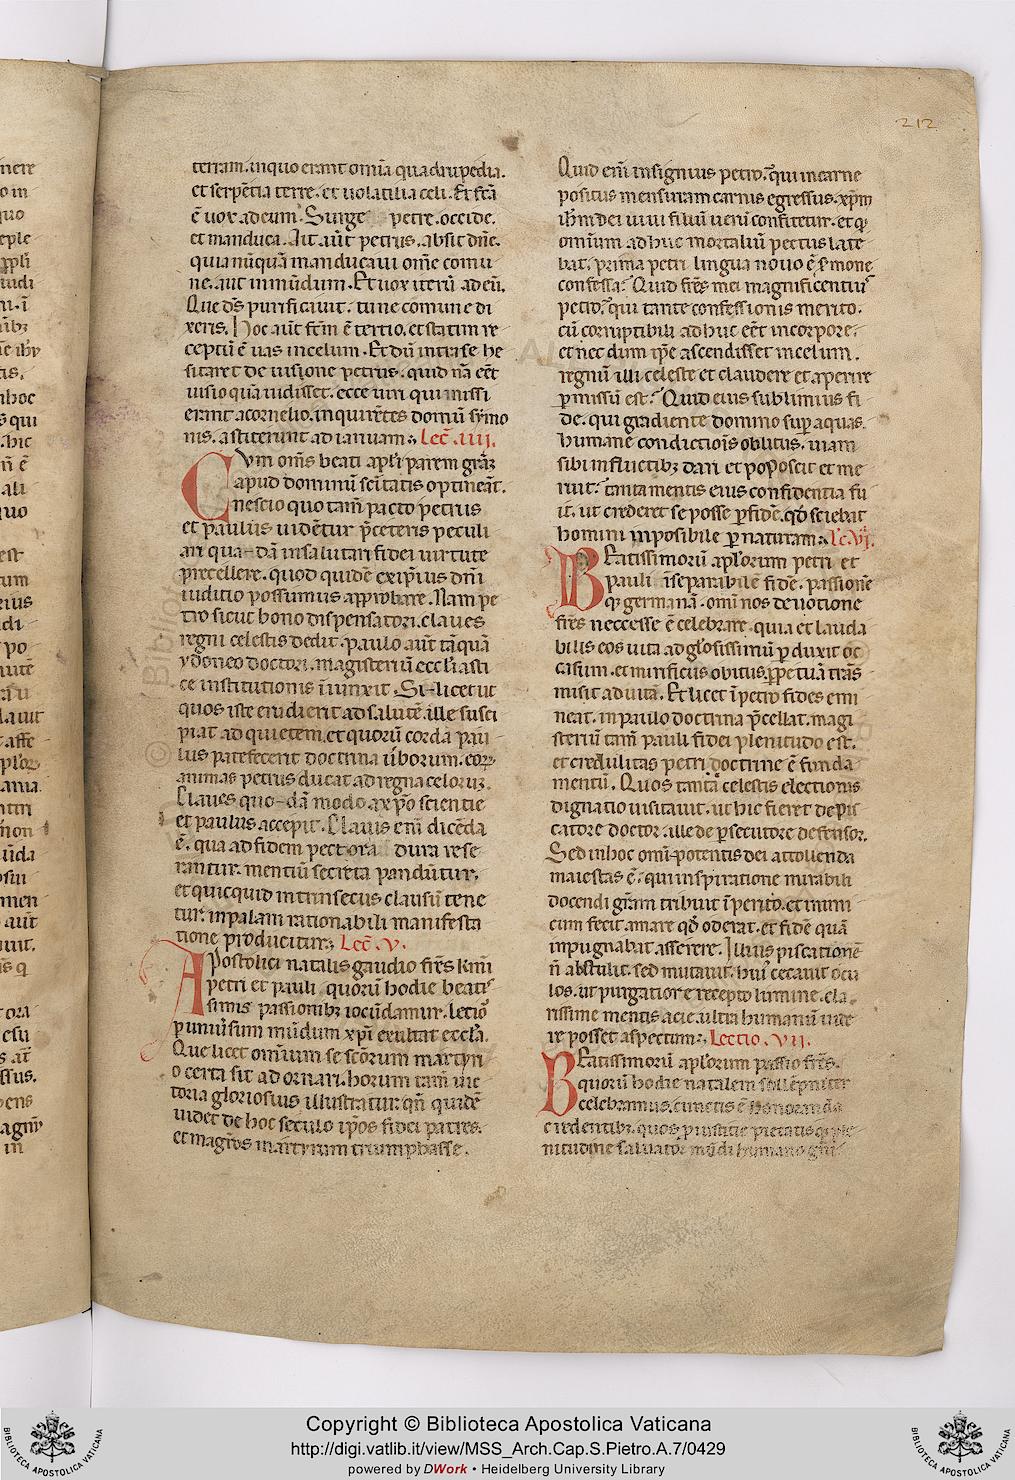 212
terram. in quo erant om̄ia quadrupedia.
et serpētia terre. et uolatilia celi. Et fc̄a
ē uox ad eum. Surge petre. occide.
et manduca. Ait. aut̄ petrus. absit dn̄e.
quia nūquā manducaui om̄e comu
ne. aut inmūdum. Et uox iterū ad eū.
Que ds̄ purificauit. tu ne comune di
xeris. Hoc aut̄ fc̄m ē tertio. et statim re
ceptū ē uas in celum. Et dū intra se he
sitaret de uisione petrus. quid nā eēt
uisio quā uidisset. ecce uiri qui missi
erant a cornelio. inquirētes domū symo
nis. astiterunt ad ianuam. Lec̄. iiii.
Cum om̄s beati apl̄i parem gr̄az
apud dominū sc̄itatis optineāt.
nescio quo tam̄ pacto petrus
et paulus uidētur p̄ceteris peculi
ari qua-dā in saluatari fidei uirtute
precellere. quod quidē ex ip̄ius dn̄i
iuditio possumus approbare. Nam pe
tro sicut bono dispensatori. claues
regni celestis dedit. paulo aut̄ tāquā
ydoneo doctori. magisteriū eccl̄iasti
ce institutionis īiunxit. Si-licet ut
quos iste erudierit ad salutē. ille susci
piat ad quietem. et quorū corda pau
lus patefecerit doctrina ūborum. eoꝝ
animas petrus ducat ad regna celoruꝫ.
Claues quo-dā modo a xp̄o scientie
et paulus accepit. Clauis eni dicēda
ē. qua ad fidem pectora dura rese
rantur. mentiū secreta pandūtur.
et quicquid intrinsecus clausū tene
tur. in palam rationabili manifesta
tione producitur. Lec̄. v.
Apostolici natalis gaudio fr̄es km̄i
petri et pauli quorū hodie beatis
simis passionibꝫ iocūdamur. lectio
p uniuersum mūdum xp̄i exultat eccl̄a.
Que licet omnium se scorum martyri
o certa sit ad ornari. horum tam̄ uic
toria gloriosius illustratur. qn̄ quidē
uidet de hoc seculo ip̄os fidei patres.
et magr̄os martyrum triumphasse.
Quid eni insignius petro. qui in carne
positus mensuram carnis egressus. xp̄m
ih̄m dei uiui filiū ueni confitetur. et qd̄
omnium adhuc mortaliū pectus late
bat. prima petri lingua nouo ē s̄mone
confessa. Quid fr̄es mei magnificentius
petro. qui tante confessionis merito.
cū corruptibili adhuc eēt in corpore.
et nec dum ip̄e ascendisset in celum.
regnū illi celeste et claudere et aperire
pmissū est. Quid eius sublimius fi
de. qui gradiente domino sup aquas.
humane condictiois oblitus. uiam
sibi in fluctibꝫ dari et poposcit et me
ruit. tanta mentis eius confidentia fu
it. ut crederet se posse p fidē. qd̄ sciebat
homini inposibile p naturam. Lc̄. vi.
Beatissimorū apl̄orum petri et
pauli īseparabilē fidē. passionē
qꝫ germanā. omi nos deuotione
fr̄es neccesse ē celebrare. quia et lauda
bilis eos uita ad gl̄osissimū pduxit oc
casum. et mirificus obitus. ppetuā trās
misit ad uitā. Et licet ī petro fides emi
neat. in paulo doctrina p̄cellat. magi
steriū tam̄ pauli fidei plenitudo est.
et credulitas petri. doctrine ē funda
mentū. Quos tantā celestis electionis
dignatio uisitauit. ut hic fieret de pis
catore doctor. ille de psecutore defensor.
Sed in hoc omi-potentis dei attollenda
maiestas ē. qui inspiratione mirabili
docendi gr̄am tribuit ī perito. et inimi
cum fecit amare qd̄ oderat. et fidē quā
inpugnabat asserere. Illius piscationē
n̄ abstulit. sed mutauit. hui' cecauit ocu
los. ut purgatiore recepto lumine. cla
rissime mentis acie ultra humanū uide
re posset aspectum. Lectio. vii.
Beatissimorū apl̄orum passio fr̄es.
quorū hodie natalem sollēpniter
celebramus. cunctis ē honoranda
credentibꝫ. quos p iustitie pietatis qꝫ ple
nitudine saluator mūdi humano gn̄i
Copyright © Biblioteca Apostolica Vaticana
http://digi.vatlib.it/view/MSS_Arch.Cap.S.Pietro.A.7/0429
powered by DWork • Heidelberg University Library
BIBLIOTECA APOSTOLICA VATICANA
BIBLIOTECA APOSTOLICA VATICANA